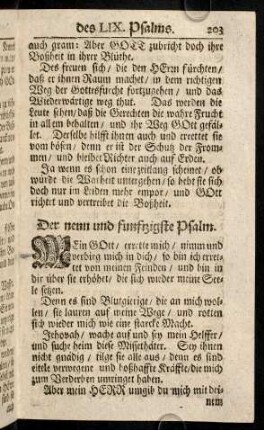 des LIX. Psalms. 203
auch gram: Aber GOTT zubricht doch ihre
Boßheit in ihrer Blüthe.
Des freuen sich/ die den HErrn fürchten/
daß er ihnen Raum machet/ in dem richtigen
Weg der Gottesfurcht fortzugehen/ und das
Wiederwärtige weg thut. Das werden die
Leute sehen/ daß die Gerechten die wahre Frucht
in allem behalten/ und ihr Weg GOtt gefäl-
let. Derselbe hilfft ihnen auch und errettet sie
vom bösen; denn er ist der Schutz der From-
men/ und bleibet Richter auch auf Erden.
Ja wenn es schon eine zeitlang scheinet/ ob
würde die Warheit untergehen/ so hebt sie sich
doch nur im Leiden mehr empor/ und GOtt
richtet und vertreibet die Boßheit.
Der neun und funfzigste Psalm.
MEin GOtt/ errette mich/ nimm und
verbirg mich in dich/ so bin ich erret-
tet von meinen Feinden/ und bin in
dir über sie erhöhet/ die sich wieder meine See-
le setzen.
Denn es sind Blutgierige/ die an mich wol-
len/ sie lauren auf meine Wege/ und rotten
sich wieder mich wie eine starcke Macht.
Jehovah/ wache auf und sey mein Helffer/
und suche heim diese Missethäter. Sey ihnen
nicht gnädig/ tilge sie alle aus/ denn es sind
eitele verwegene und boßhaffte Kräffte/ die mich
zum Verderben umringet haben.
Aber mein HERR umgib du mich mit dei-
nem